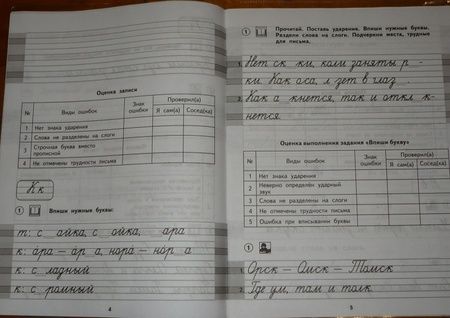 Оценка записи
№ Виды ошибок Знак ошибки Проверил(а)
Я сам(а) Сосед(ка)
1 Нет знака ударения
2 Слова не разделены на слоги
3 Строчная буква вместо прописной
4 Не отмечены трудности письма
Кк
1 Впиши нужные буквы:
т: с айка, с ойка, ара
к: а́ра – а́р а, нора́ – но́р а
к: с ладный
к: с ромный
4
1 Прочитай. Поставь ударения. Впиши нужные буквы.
Раздели слова на слоги. Подчеркни места, трудные
для письма.
1. Нет ск ки, коли заняты р -
ки. Как оса, л зет в глаз .
2. Как а кнется, так и откл к-
нется.
Оценка выполнения задания «Впиши букву»
№ Виды ошибок Знак ошибки Проверил(а)
Я сам(а) Сосед(ка)
1 Нет знака ударения
2 Неверно определён ударный звук
3 Слова не разделены на слоги
4 Не отмечены трудности письма
5 Ошибка при вписывании буквы
1
1. Орск – Омск – Томск
2. Где ум, там и толк.
5